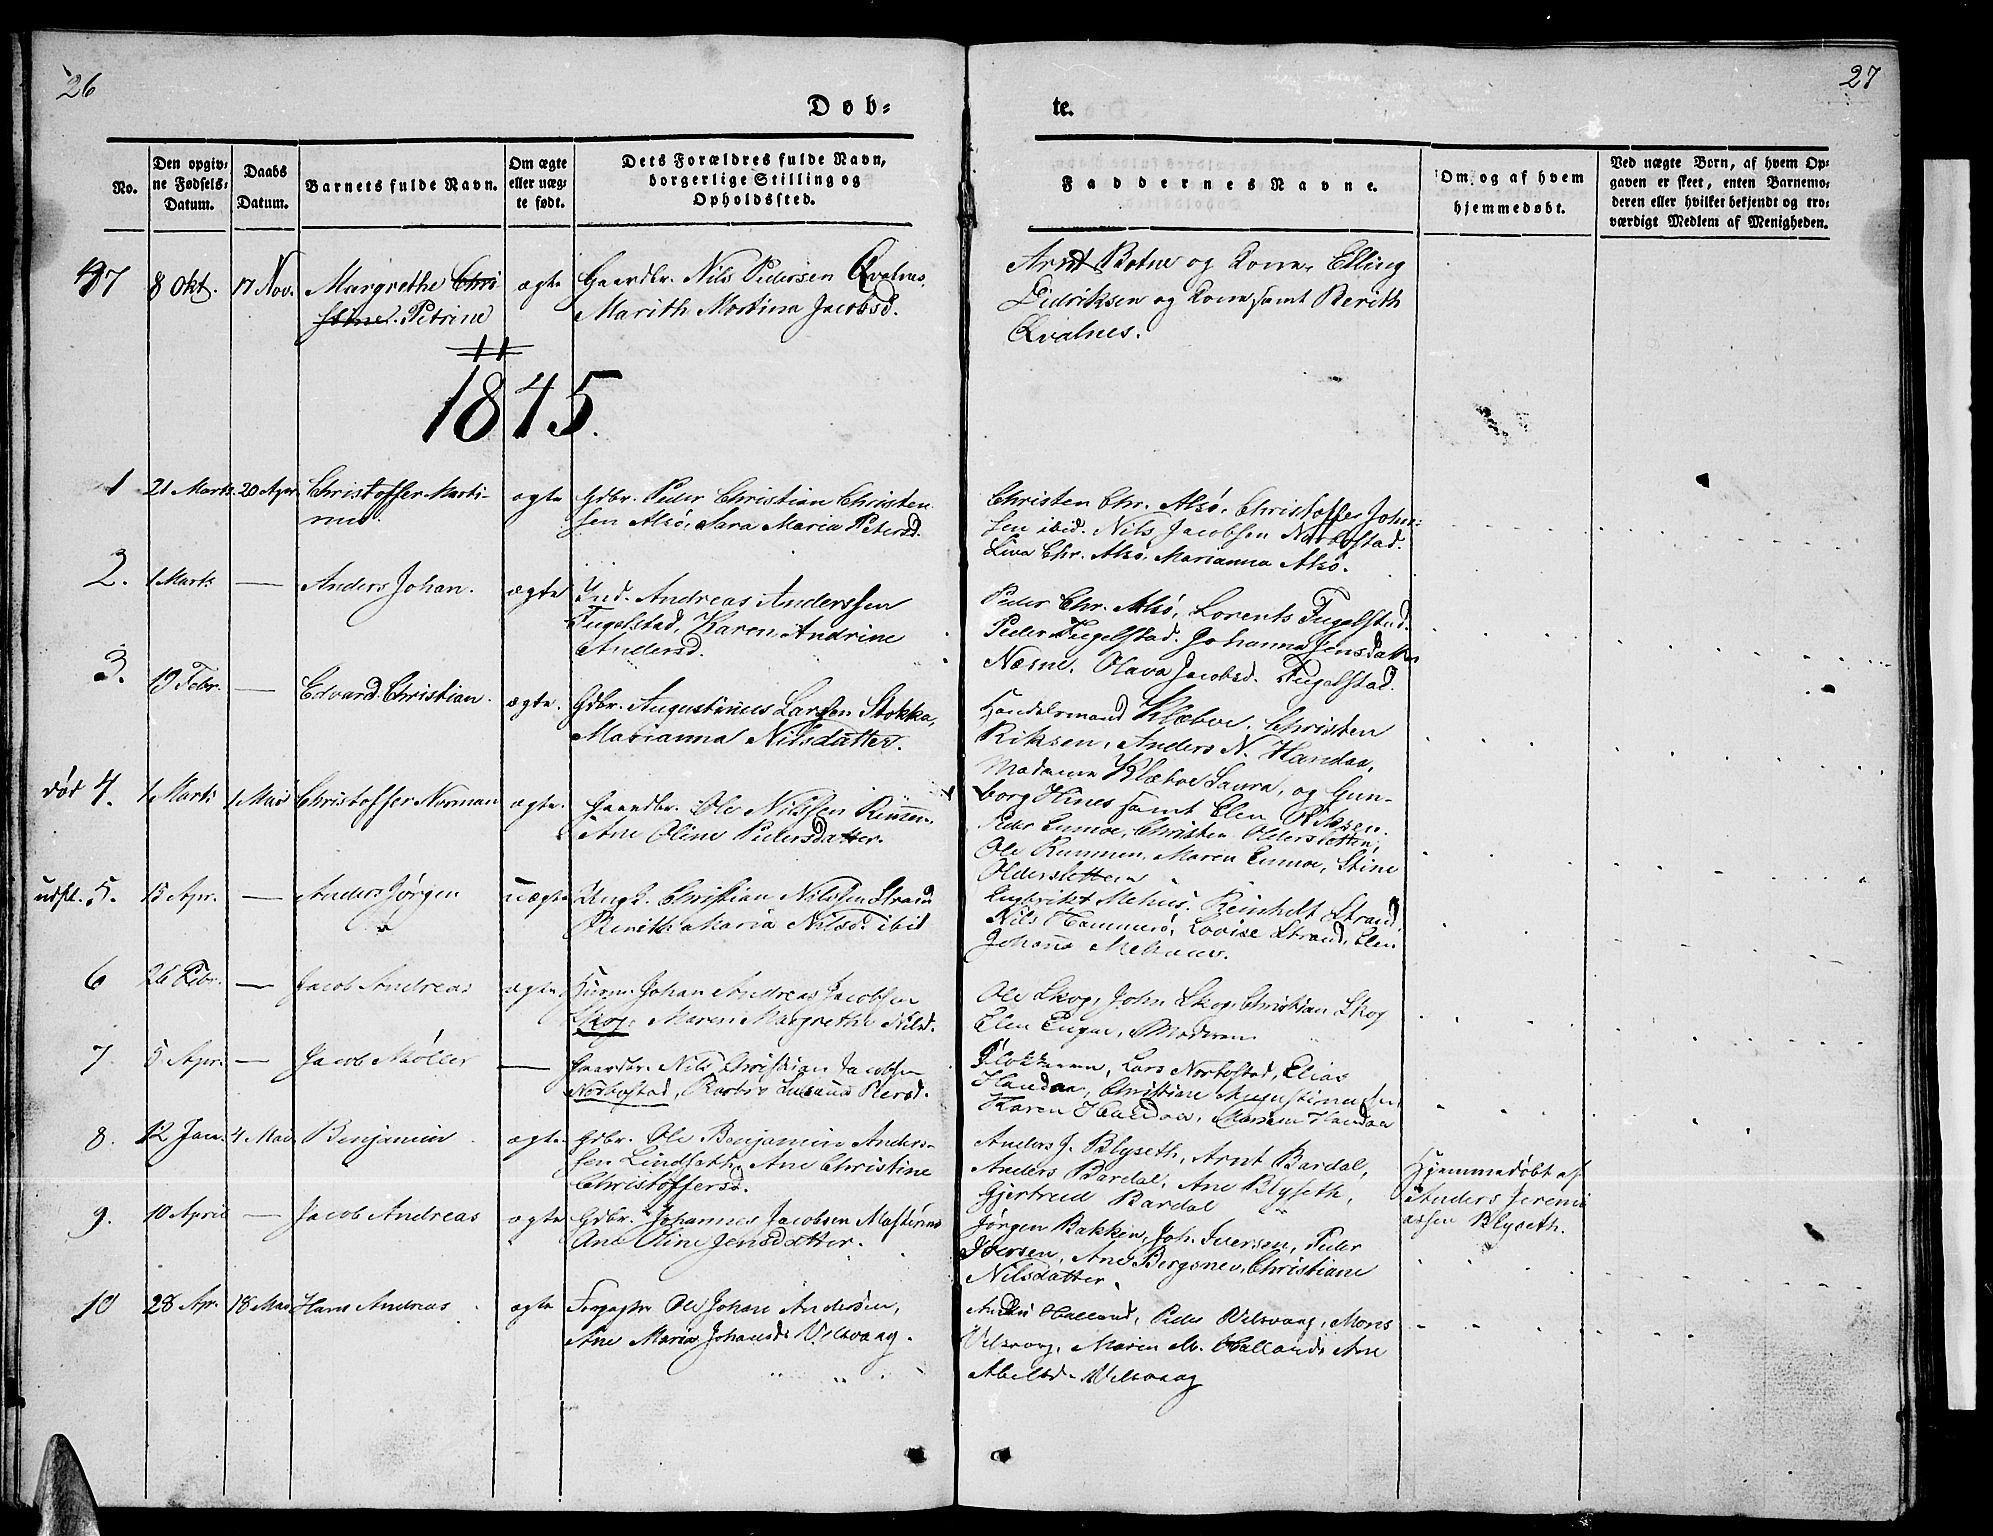 26
27
Døb-
te.
No.
Den opgiv-
ne Fødsels-
Datum.
Daabs
Datum.
Barnets fulde Navn.
Om ægte
eller uæg-
te født.
Dets Forældres fulde Navn,
borgerlige Stilling og
Opholdssted.
Faddernes Navne.
Om og af hvem
hjemmedøbt.
Ved uægte Børn, af hvem Op-
gaven er skeet, enten Barnemo-
deren eller hvilket bekjendt og tro-
værdigt Medlem af Menigheden.
8 Okt. 17 Nov. Margrethe Chri- ægte Gaardbr. Nils Pedersen Qvalnes,
stine. Petrine Marith Martina Jacobsd.
Arnt Botne og Kone, Elling
Didriksen og Kone samt Berith
Qvalnes.
1845.
1 21 Marts 20 Apr. Christoffer Marti- ægte Gdbr. Peder Christian Christen
nus. sen Alsø, Sara Maria Petersd.
Christen Chr. Alsø, Christoffer John-
sen ibid. Nils Jacobsen Norbostad.
Liva Chr. Alsø, Marianna Alsø.
2. 1 Marts — Anders Johan. ægte Ind. Andreas Anderssen
Fugelstad, Karen Andrine
Andersd.
Peder Chr. Alsø, Lorents Fugelstad.
Peder Fugelstad. Johanna Jensdatter
Næsne. Olava Jacobsd. Fugelstad.
3. 19 Febr. — Edvard Christian. ægte. Gdbr. Augustinus Larsen Stokka,
Marianna Nilsdatter.
Handelsmand Klæboe. Christen
Riksen, Anders N. Handaa,
Madame Klæboe Laura, og Gun-
borg Hines samt Elen Riksen.
død 4. 1 Marts 1 Mai Christoffer Norman ægte. Gaardbr. Ole Nilssen
Ane Oline Pedersdatter.
Peder Enmoe, Christen Oldersletten,
Ole Rummen, Maren Enmoe, Stine
Oldersletten
5. 15 Apr. — Anders Jørgen uægte Ungk. Christian Nilssen Strand
Berith Maria Nilsd. ibid
Engbrikt Mehus. Reinholt Strand,
Nils Hammerø, Lovise Strand, Elen
Johans
6 26 Febr. — Jacob Andreas ægte. Huusm. Johan Andreas Jacobsen
Skog, Maren Margrethe Nilsd.
Ole Skog, John Skog, Christian Skog
Elen Enga, Moderen
7. 5 Apr. — Jacob Møller — Gaardbr. Nils Christian Jacobsen
Norbostad, Barbro Susanna Persd.
Klokkeren, Lars Norbostad, Elias
Handaa, Christiane Augustinussen,
Karen Handaa, Maren Handaa
8. 12 Jan. 4 Mai Benjamin ægte. Gdbr. Ole Benjamin Anders-
sen Lindseth, Ane Christine
Christoffersd.
Anders J. Blyseth, Arnt Bardal,
Anders Bardal, Ane Blyseth,
Gjertrud Bardal
Hjemmedøbt af
Anders Jeremi
assen Blyseth.
9. 10 April — Jacob Andreas ægte Gdbr. Johannes Jacobsen
Ane Oline Jensdatter.
Jørgen Bakken, Joh. Iversen, Peder
Iversen, Ane Bergsnev, Christiane
Nilsdatter.
10 28 Apr. 18 Mai Hans Andreas ægte Forpagter Ole Johan Andersen,
Ane Maria Johansd. Velsvaag.
Halland, Peder Velsvaag, Mons
Velsvaag, Maren M. Halland, Ane
Abelsd. Velsvaag